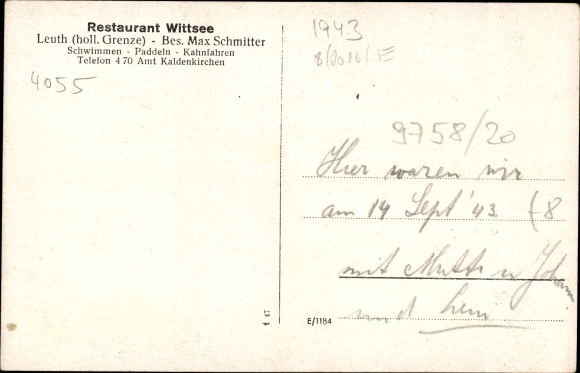 Restaurant Wittsee
Leuth (holl. Grenze) - Bes. Max Schmitter
Schwimmen - Paddeln - Kahnfahren
Telefon 470 Amt Kaldenkirchen
4055
1943
9758/20
Hier waren wir
am 14 Sept '43 (8
mit Mutti u Johann
und
E/1184